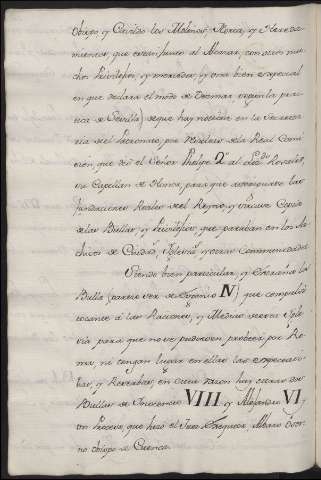 Obispo y Cavildo los Molinos, Horca, y Hereda-
mientos, que estan junto al Alcazar, con otros mu-
chos Privilegios, y mercedes, y una bien especial
en que declara el modo de Diezmar, segun la prac-
tica de Sevilla) de que hay noticia en la Secreta-
ria del Patronato por Relacion de la Real Comi-
sion, que dió el Señor Phelipe 2º al
su Capellan de Honor, para que averiguase las
fundaciones Reales del Reyno, y sacase Copias
de las Bullas, y Privilegios que paraban en los Ar-
chivos de Ciudad, Iglesias, y otras Comunidades
Siendo bien particular, y extraña la
Bulla (parece ser de Eugenio IV) que
tocante á las Raciones, y Medias de esta Igle-
sia para que no se pudiesen proveer por Ro-
ma, ni tengan lugar en ellas las expectati-
bas, y Reservas, en cuia razon hay otras dos
Bullas de Inocencio VIII y Alejandro VI,
con Proceso, que hizo el Juez
no obispo de Cuenca.